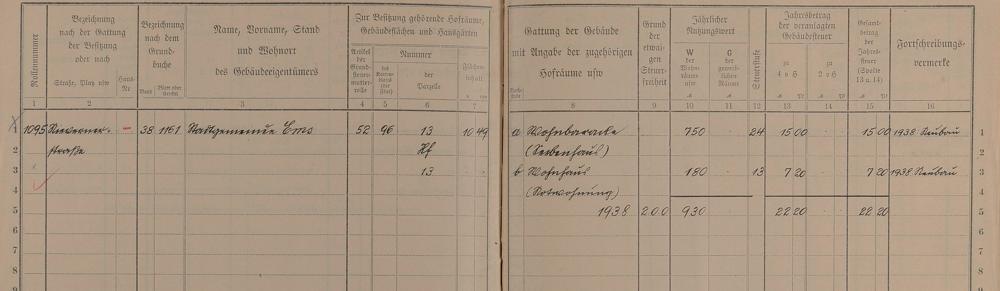 Rollennummer
Bezeichnung nach der Gattung der Besitzung oder nach
Straße, Platz usw
Haus-Nr
Bezeichnung nach dem Grundbuche
Band
Blatt oder Artikel
Name, Vorname, Stand und Wohnort des Gebäudeeigentümers
Zur Besitzung gehörende Hofräume, Gebäudeflächen und Hausgärten
Artikel der Grundsteuermutterrolle
Nummer
des Kartenblatts (der Flur)
der Parzelle
Flächeninhalt
Gattung der Gebäude mit Angabe der zugehörigen Hofräume usw
Grund der etwaigen Steuerfreiheit
Jährlicher Nutzungswert
W der Wohnräume usw
G der gewerblichen Räume
Steuerstufe
Jahresbetrag der veranlagten Gebäudesteuer
zu 4 v H
zu 2 v H
Gesamtbetrag der Jahressteuer (Spalte 13 u. 14)
Fortschreibungsvermerke
1 2 3 4 5 6 7 8 9 10 11 12 13 14 15 16
1 1095 – 38 1161 Stadtgemeinde Ems 52 96 13 10 49 a Wohnbaracke 750 24 15 00 15 00 1938 Neubau 1
2 straße Hf 2
3 13 b Wohnhaus 180 13 7 20 7 20 1938 Neubau 3
4 (Notwohnung) 4
5 1938 200 930 22 20 22 20 5
6 6
7 7
8 8
9